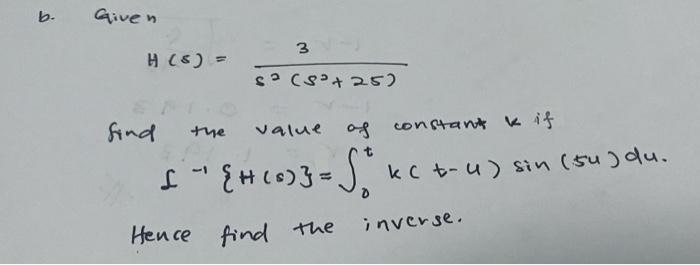 b. Given
H(s) = 3 / s²(s²+25)
find the value of constant k if
L⁻¹{H(s)} = ∫₀ᵗ k(t-u) sin(5u) du.
Hence find the inverse.